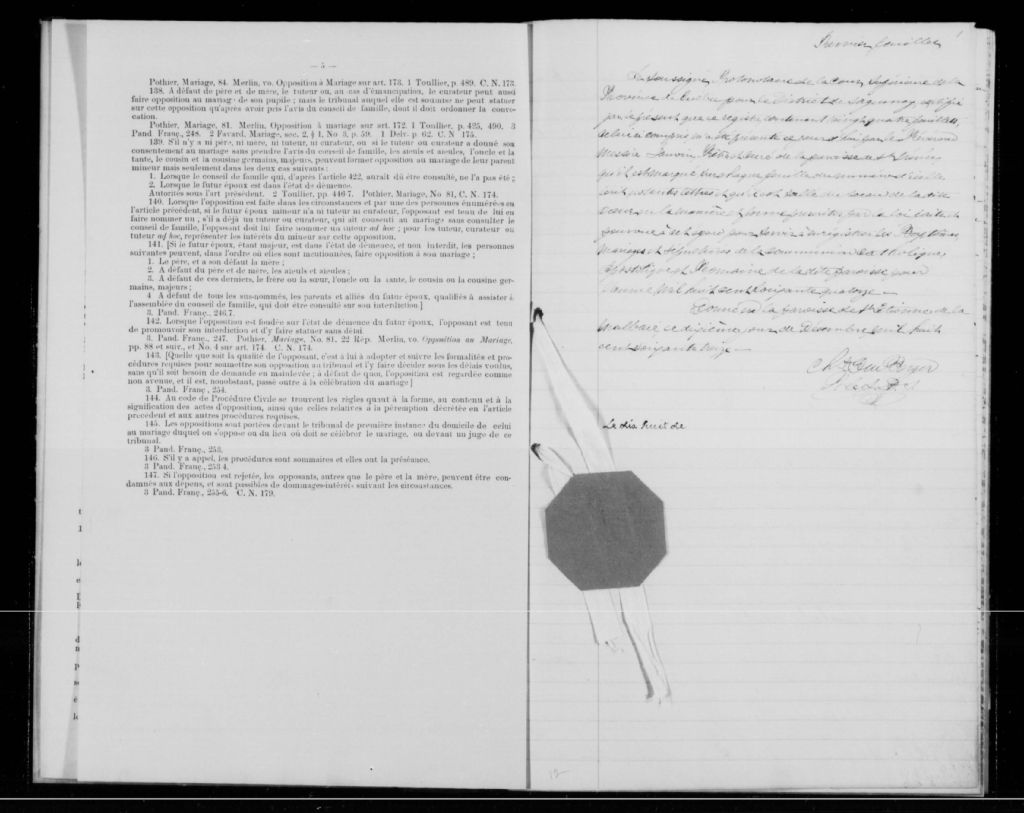 — 5 —
Pothier, Mariage, 84. Merlin, vo. Opposition à Mariage sur art. 173. 1 Toullier, p. 489. C. N. 173
138. A défaut de père et de mère, le tuteur ou, au cas d'émancipation, le curateur peut aussi
faire opposition au mariage de son pupile ; mais le tribunal auquel elle est soumise ne peut statuer
sur cette opposition qu'après avoir pris l'avis du conseil de famille, dont il doit ordonner la convo-
cation.
Pothier, Mariage, 81. Merlin, Opposition à mariage sur art. 172. 1 Toullier, p. 425, 490, 3
Pand Franç., 248. 2 Favard. Mariage, sec. 2, § 1, No 3, p. 59. 1 Delv. p. 62. C. N 175.
139. S'il n'y a ni père, ni mère, ni tuteur, ni curateur, ou si le tuteur ou curateur a donné son
consentement au mariage sans prendre l'avis du conseil de famille, les aïeuls et aïeules, l'oncle et la
tante, le cousin et la cousine germains, majeurs, peuvent former opposition au mariage de leur parent
mineur mais seulement dans les deux cas suivants :
1. Lorsque le conseil de famille qui, d'après l'article 422, aurait dû être consulté, ne l'a pas été ;
2. Lorsque le futur époux est dans l'état de démence.
Autorités sous l'art précédent. 2 Toullier, pp. 446 7. Pothier, Mariage, No 81, C. N. 174.
140. Lorsque l'opposition est faite dans les circonstances et par une des personnes énumérées en
l'article précédent, si le futur époux mineur n'a ni tuteur ni curateur, l'opposant est tenu de lui en
faire nommer un ; s'il a déjà un tuteur ou curateur, qui ait consenti au mariage sans consulter le
conseil de famille, l'opposant doit lui faire nommer un tuteur ad hoc ; pour les tuteur, curateur ou
tuteur ad hoc, représenter les intérêts du mineur sur cette opposition.
141. [Si le futur époux, étant majeur, est dans l'état de démence, et non interdit, les personnes
suivantes peuvent, dans l'ordre où elles sont mentionnées, faire opposition à son mariage ;
1. Le père, et a son défaut la mère ;
2. A défaut du père et de mère, les aïeuls et aïeules ;
3. A défaut de ces derniers, le frère ou la sœur, l'oncle ou la tante, le cousin ou la cousine ger-
mains, majeurs ;
4 A défaut de tous les sus-nommés, les parents et alliés du futur époux, qualifiés à assister à
l'assemblée du conseil de famille, qui doit être consulté sur son interdiction.]
3. Pand. Franç., 246,7.
142. Lorsque l'opposition est fondée sur l'état de démence du futur époux, l'opposant est tenu
de promouvoir son interdiction et d'y faire statuer sans délai.
3. Pand. Franç., 247. Pothier, Mariage, No. 81. 22 Rép. Merlin, vo. Opposition au Mariage,
pp. 88 et suiv., et No. 4 sur art. 174. C. N. 174.
143. [Quelle que soit la qualité de l'opposant, c'est à lui à adopter et suivre les formalités et pro-
cédures requises pour soumettre son opposition au tribunal et l'y faire décider sous les délais voulus,
sans qu'il soit besoin de demande en mainlevée ; à défaut de quoi, l'opposition est regardée comme
non avenue, et il est, nonobstant, passé outre à la célébration du mariage]
3. Pand. Franç., 254.
144. Au code de Procédure Civile se trouvent les règles quant à la forme, au contenu et à la
signification des actes d'opposition, ainsi que celles relatives à la péremption décrétée en l'article
precédent et aux autres procédures requises.
145. Les oppositions sont portées devant le tribunal de première instance du domicile de celui
au mariage duquel on s'oppose ou du lieu où doit se célébrer le mariage, ou devant un juge de ce
tribunal.
3 Pand. Franç., 253.
146. S'il y a appel, les procédures sont sommaires et elles ont la préséance.
3 Pand. Franç., 253 4.
147. Si l'opposition est rejetée, les opposants, autres que le père et la mère, peuvent être con-
damnés aux dépens, et sont passibles de dommages-intérêts suivant les circonstances.
3 Pand. Franç., 255-6. C. N. 179.
Premier feuillet 1
Le soussigné, Protonotaire de la Cour Supérieure de la
Province de Québec, pour le District de Saguenay, certifie
par le présent que ce registre contenant vingt quatre feuillets,
Curé de la paroisse de St
qu'il est marqué sur chaque feuillet du numéro d'icelui
lettres et qu'il est scellé du sceau de la dite
cour en la manière et forme prescrites par la loi
pour servir à enregistrer les Baptêmes
Mariages et Sépultures de la communion Catholique
Apostolique et Romaine de la dite paroisse pour
l'année mil huit cent soixante quatorze —
Donné en la paroisse de St Etienne de la
Malbaie ce dixième jour de Décembre mil huit
cent soixante treize —
Le dis huit de
12